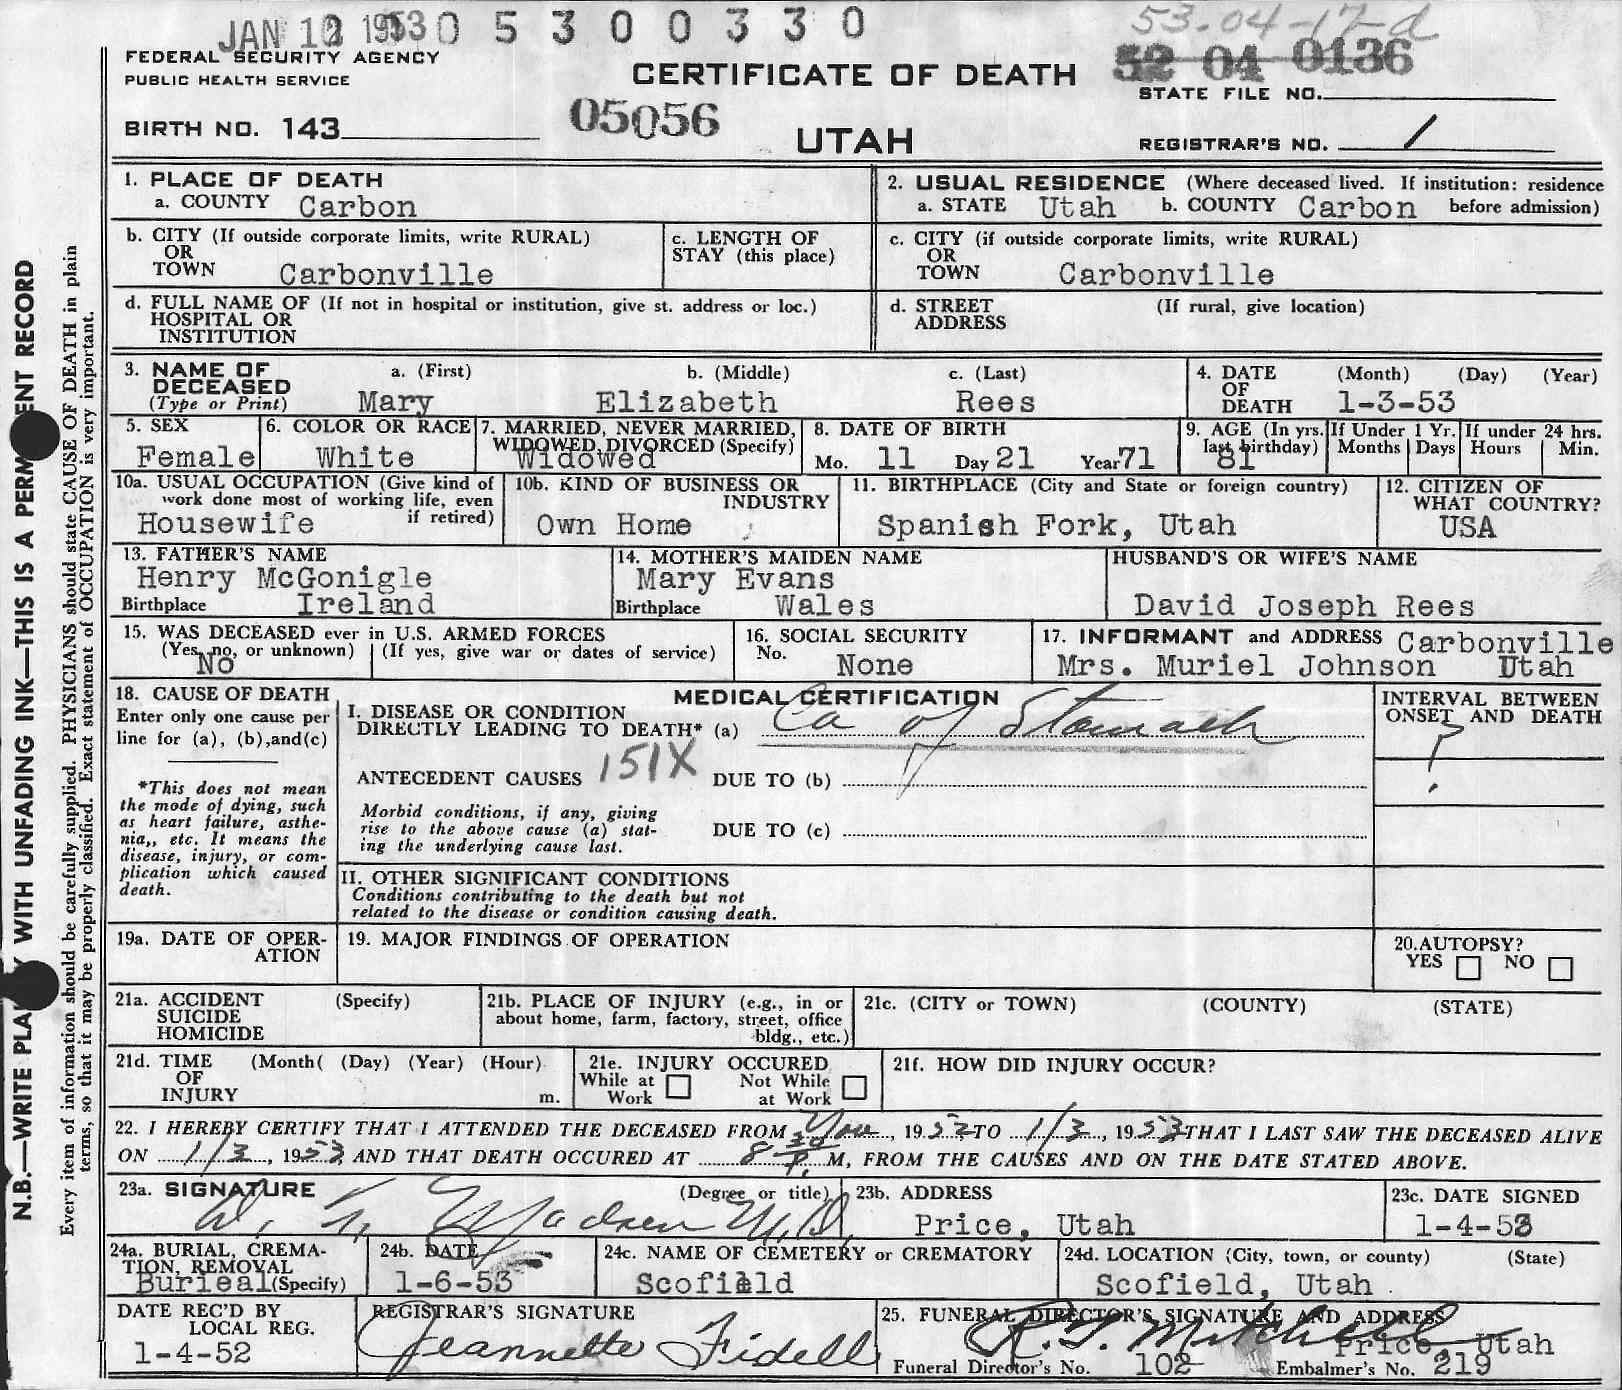 JAN 12 1953 0 5 3 0 0 3 3 0
53-04-17-d
FEDERAL SECURITY AGENCY
PUBLIC HEALTH SERVICE
CERTIFICATE OF DEATH
52 04 0136
STATE FILE NO.
BIRTH NO. 143
05056
UTAH
REGISTRAR'S NO. 1
N.B.—WRITE PLA WITH UNFADING INK—THIS IS A PERM ENT RECORD
Every item of information should be carefully supplied. PHYSICIANS should state CAUSE OF DEATH in plain
terms, so that it may be properly classified. Exact statement of OCCUPATION is very important.
1. PLACE OF DEATH
a. COUNTY Carbon
2. USUAL RESIDENCE (Where deceased lived. If institution: residence
a. STATE Utah b. COUNTY Carbon before admission)
b. CITY (If outside corporate limits, write RURAL)
OR
TOWN Carbonville
c. LENGTH OF
STAY (this place)
c. CITY (if outside corporate limits, write RURAL)
OR
TOWN Carbonville
d. FULL NAME OF (If not in hospital or institution, give st. address or loc.)
HOSPITAL OR
INSTITUTION
d. STREET (If rural, give location)
ADDRESS
3. NAME OF a. (First) b. (Middle) c. (Last)
DECEASED
(Type or Print) Mary Elizabeth Rees
4. DATE (Month) (Day) (Year)
OF
DEATH 1-3-53
5. SEX
Female
6. COLOR OR RACE
White
7. MARRIED, NEVER MARRIED,
WIDOWED, DIVORCED (Specify)
Widowed
8. DATE OF BIRTH
Mo. 11 Day 21 Year 71
9. AGE (In yrs.
last birthday)
81
If Under 1 Yr.
Months Days
If under 24 hrs.
Hours Min.
10a. USUAL OCCUPATION (Give kind of
work done most of working life, even
if retired)
Housewife
10b. KIND OF BUSINESS OR
INDUSTRY
Own Home
11. BIRTHPLACE (City and State or foreign country)
Spanish Fork, Utah
12. CITIZEN OF
WHAT COUNTRY?
USA
13. FATHER'S NAME
Henry McGonigle
Birthplace Ireland
14. MOTHER'S MAIDEN NAME
Mary Evans
Birthplace Wales
HUSBAND'S OR WIFE'S NAME
David Joseph Rees
15. WAS DECEASED ever in U.S. ARMED FORCES
(Yes, no, or unknown) (If yes, give war or dates of service)
No
16. SOCIAL SECURITY
No. None
17. INFORMANT and ADDRESS Carbonville
Mrs. Muriel Johnson Utah
18. CAUSE OF DEATH
Enter only one cause per
line for (a), (b), and (c)
*This does not mean
the mode of dying, such
as heart failure, asthe-
nia,, etc. It means the
disease, injury, or com-
plication which caused
death.
MEDICAL CERTIFICATION
I. DISEASE OR CONDITION
DIRECTLY LEADING TO DEATH* (a) Ca of Stomach
ANTECEDENT CAUSES 151X DUE TO (b)
Morbid conditions, if any, giving
rise to the above cause (a) stat-
ing the underlying cause last.
DUE TO (c)
INTERVAL BETWEEN
ONSET AND DEATH
?
II. OTHER SIGNIFICANT CONDITIONS
Conditions contributing to the death but not
related to the disease or condition causing death.
19a. DATE OF OPER-
ATION
19. MAJOR FINDINGS OF OPERATION
20. AUTOPSY?
YES NO
21a. ACCIDENT (Specify)
SUICIDE
HOMICIDE
21b. PLACE OF INJURY (e.g., in or
about home, farm, factory, street, office
bldg., etc.)
21c. (CITY or TOWN) (COUNTY) (STATE)
21d. TIME (Month( (Day) (Year) (Hour)
OF
INJURY m.
21e. INJURY OCCURED
While at Not While
Work at Work
21f. HOW DID INJURY OCCUR?
22. I HEREBY CERTIFY THAT I ATTENDED THE DECEASED FROM Nov, 1952 TO 1/3, 1953 THAT I LAST SAW THE DECEASED ALIVE
ON 1/3, 1953, AND THAT DEATH OCCURED AT 8 30 P. M, FROM THE CAUSES AND ON THE DATE STATED ABOVE.
23a. SIGNATURE (Degree or title)
Madsen M.D.
23b. ADDRESS
Price, Utah
23c. DATE SIGNED
1-4-53
24a. BURIAL, CREMA-
TION, REMOVAL
Burieal (Specify)
24b. DATE
1-6-53
24c. NAME OF CEMETERY or CREMATORY
Scofield
24d. LOCATION (City, town, or county) (State)
Scofield, Utah
DATE REC'D BY
LOCAL REG.
1-4-52
REGISTRAR'S SIGNATURE
Jeannette Fidell
25. FUNERAL DIRECTOR'S SIGNATURE AND ADDRESS
Mitchell Price, Utah
Funeral Director's No. 102 Embalmer's No. 219